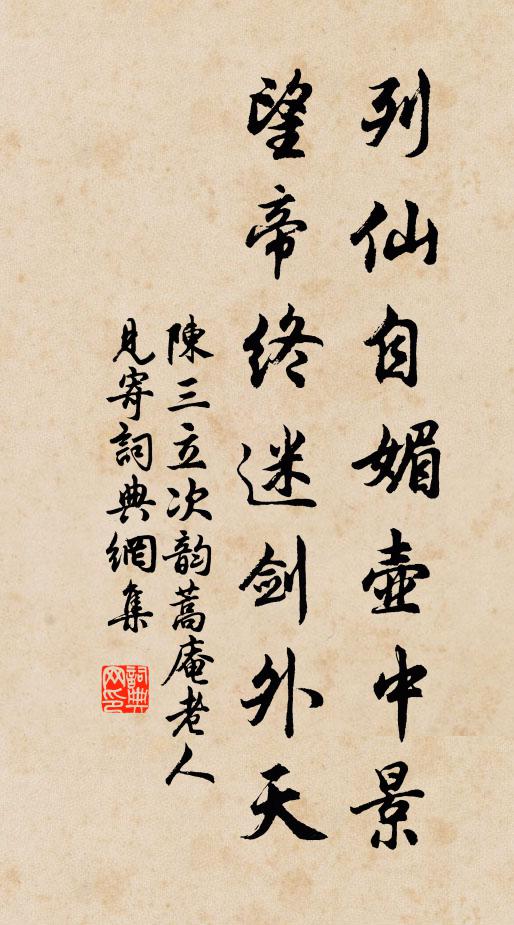 列仙自媚壺中景
望帝終迷劍外天
陳三立次韵蒿庵老人
見寄詞典網集
詞典网印